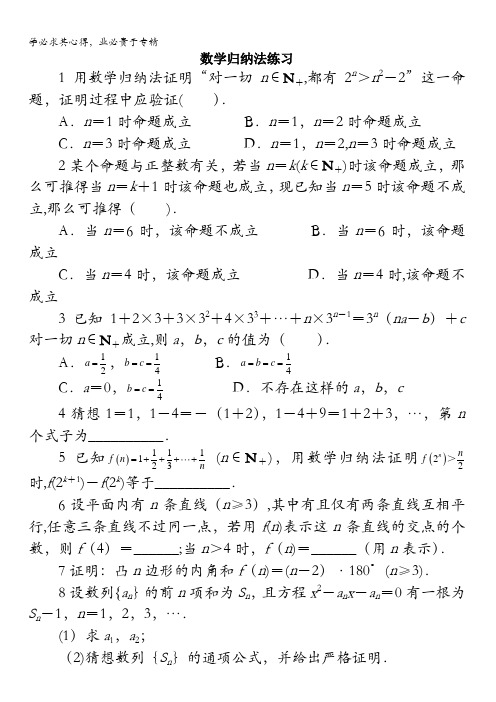 学必求其心得，业必贵于专精
数学归纳法练习
1 用数学归纳法证明“对一切 n∈N₊,都有 2ⁿ＞n²－2”这一命
题，证明过程中应验证( ).
A．n＝1 时命题成立 B．n＝1，n＝2 时命题成立
C．n＝3 时命题成立 D．n＝1，n＝2,n＝3 时命题成立
2 某个命题与正整数有关，若当 n＝k(k∈N₊)时该命题成立，那
么可推得当 n＝k＋1 时该命题也成立，现已知当 n＝5 时该命题不成
立,那么可推得（ ).
A．当 n＝6 时，该命题不成立 B．当 n＝6 时，该命题
成立
C．当 n＝4 时，该命题成立 D．当 n＝4 时,该命题不
成立
3 已知 1＋2×3＋3×3²＋4×3³＋…＋n×3ⁿ⁻¹＝3ⁿ（na－b）＋c
对一切 n∈N₊成立,则 a，b，c 的值为（ ).
A．a=1/2，b=c=1/4 B．a=b=c=1/4
C．a＝0，b=c=1/4 D．不存在这样的 a，b，c
4 猜想 1＝1，1－4＝－（1＋2），1－4＋9＝1＋2＋3，…，第 n
个式子为__________．
5 已知 f(n)=1+1/2+1/3+⋯+1/n (n∈N₊)，用数学归纳法证明 f(2ⁿ)>n/2
时,f(2ᵏ⁺¹)－f(2ᵏ)等于__________．
6 设平面内有 n 条直线（n≥3）,其中有且仅有两条直线互相平
行,任意三条直线不过同一点，若用 f(n)表示这 n 条直线的交点的个
数，则 f（4）＝______;当 n＞4 时，f（n)＝______（用 n 表示).
7 证明：凸 n 边形的内角和 f（n)＝(n－2）·180°(n≥3).
8 设数列{aₙ}的前 n 项和为 Sₙ，且方程 x²－aₙx－aₙ＝0 有一根为
Sₙ－1，n＝1，2，3，…．
(1）求 a₁，a₂；
（2)猜想数列｛Sₙ｝的通项公式，并给出严格证明．